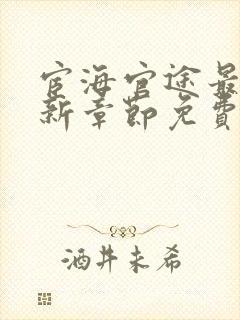 宦海官途最
新章节免费
酒井未希